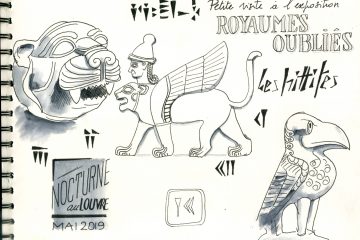 Petite visite à l'exposition
ROYAUMES
OUBLIÉS
Les hittites
NOCTURNE
au LOUVRE
MAI 2019